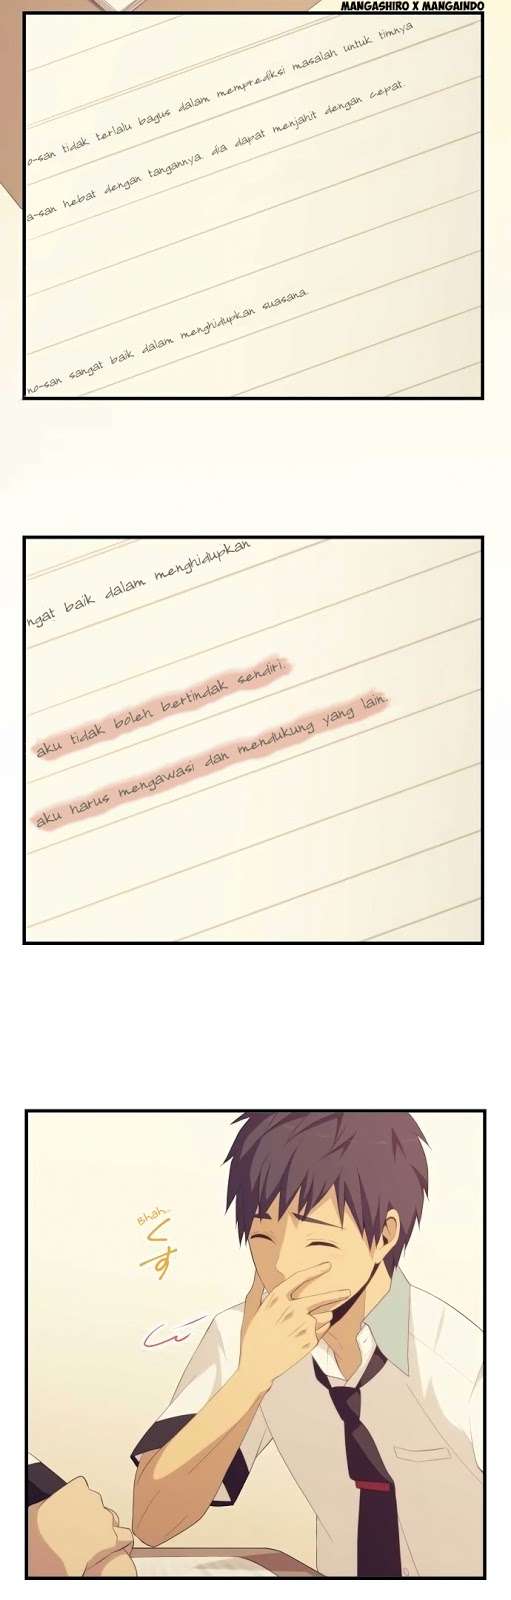 MANGASHIRO X MANGAINDO
o-san tidak terlalu bagus dalam memprediksi masalah untuk timnya
a-san hebat dengan tangannya. dia dapat menjahit dengan cepat
no-san sangat baik dalam menghidupkan suasana.
ngat baik dalam menghidupkan
aku tidak boleh bertindak sendiri.
aku harus mengawasi dan mendukung yang lain.
Bhah..
くす